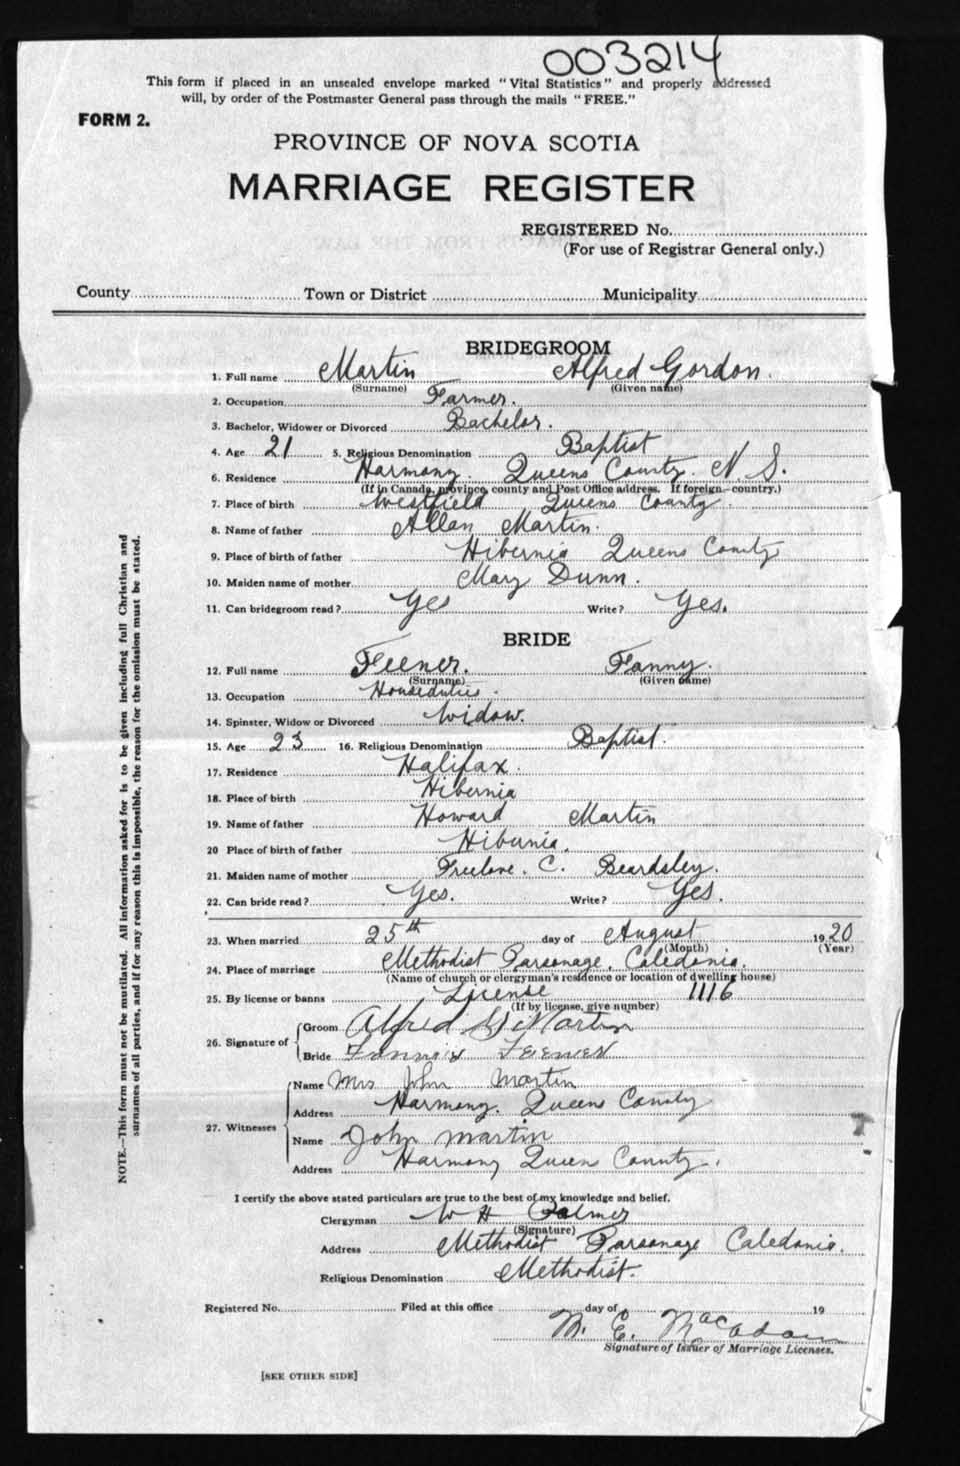 003214
This form if placed in an unsealed envelope marked "Vital Statistics" and properly addressed
will, by order of the Postmaster General pass through the mails "FREE."
FORM 2.
PROVINCE OF NOVA SCOTIA
MARRIAGE REGISTER
REGISTERED No.
(For use of Registrar General only.)
County Town or District Municipality
BRIDEGROOM
1. Full name Martin Alfred Gordon.
(Surname) (Given name)
2. Occupation Farmer.
3. Bachelor, Widower or Divorced Bachelor.
4. Age 21 5. Religious Denomination Baptist
6. Residence Harmony. Queens County. N. S.
(If in Canada, province, county and Post Office address. If foreign—country.)
7. Place of birth Westfield Queens County.
8. Name of father Allan Martin.
9. Place of birth of father Hibernia Queens County
10. Maiden name of mother Mary Dunn.
11. Can bridegroom read? Yes Write? Yes.
BRIDE
12. Full name Feener. Fanny.
(Surname) (Given name)
13. Occupation Houseduties.
14. Spinster, Widow or Divorced Widow.
15. Age 23 16. Religious Denomination Baptist.
17. Residence Halifax.
18. Place of birth Hibernia
19. Name of father Howard Martin
20 Place of birth of father Hibernia.
21. Maiden name of mother Freelove. C. Beardsley.
22. Can bride read? Yes. Write? Yes.
23. When married 25th day of August 1920
(Month) (Year)
24. Place of marriage Methodist Parsonage, Caledonia.
(Name of church or clergyman's residence or location of dwelling house)
25. By license or banns License 1116
(If by license, give number)
26. Signature of Groom Alfred G Martin
Bride Fannie Feener
27. Witnesses Name Mrs John Martin
Address Harmony. Queens County
Name John Martin
Address Harmony Queens County.
I certify the above stated particulars are true to the best of my knowledge and belief.
Clergyman W H Palmer
(Signature)
Address Methodist Parsonage Caledonia.
Religious Denomination Methodist.
Registered No. Filed at this office day of 19
M. E. MacAdam
Signature of Issuer of Marriage Licenses.
[SEE OTHER SIDE]
NOTE.—This form must not be mutilated. All information asked for is to be given including full Christian and
surnames of all parties, and if for any reason this is impossible, the reason for the omission must be stated.